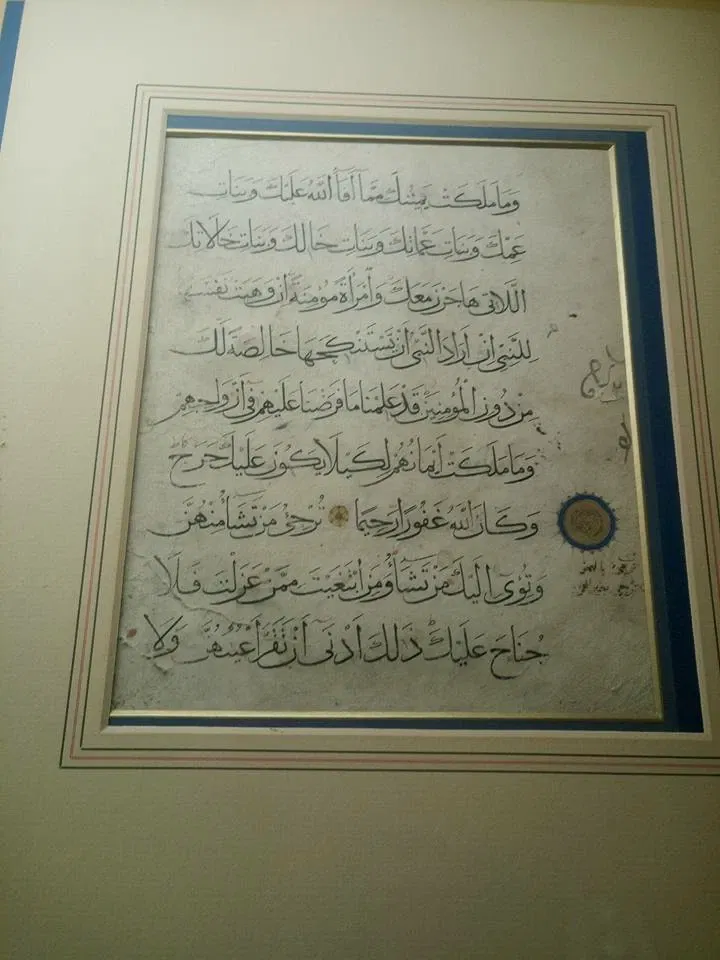 وَمَا مَلَكَتْ يَمِينُكَ مِمَّا أَفَاءَ اللَّهُ عَلَيْكَ وَبَنَاتِ
عَمِّكَ وَبَنَاتِ عَمَّاتِكَ وَبَنَاتِ خَالِكَ وَبَنَاتِ خَالَاتِكَ
اللَّاتِي هَاجَرْنَ مَعَكَ وَامْرَأَةً مُؤْمِنَةً أَنْ وَهَبَتْ نَفْسَهَا
لِلنَّبِيِّ إِنْ أَرَادَ النَّبِيُّ أَنْ يَسْتَنْكِحَهَا خَالِصَةً لَكَ
مِنْ دُونِ الْمُؤْمِنِينَ قَدْ عَلِمْنَا مَا فَرَضْنَا عَلَيْهِمْ فِي أَزْوَاجِهِمْ
وَمَا مَلَكَتْ أَيْمَانُهُمْ لِكَيْلَا يَكُونَ عَلَيْكَ حَرَجٌ
وَكَانَ اللَّهُ غَفُورًا رَحِيمًا تُرْجِئُ مَنْ تَشَاءُ مِنْهُنَّ
وَتُؤْوِي إِلَيْكَ مَنْ تَشَاءُ وَمَنِ ابْتَغَيْتَ مِمَّنْ عَزَلْتَ فَلَا
جُنَاحَ عَلَيْكَ ذَلِكَ أَدْنَى أَنْ تَقَرَّ أَعْيُنُهُنَّ وَلَا